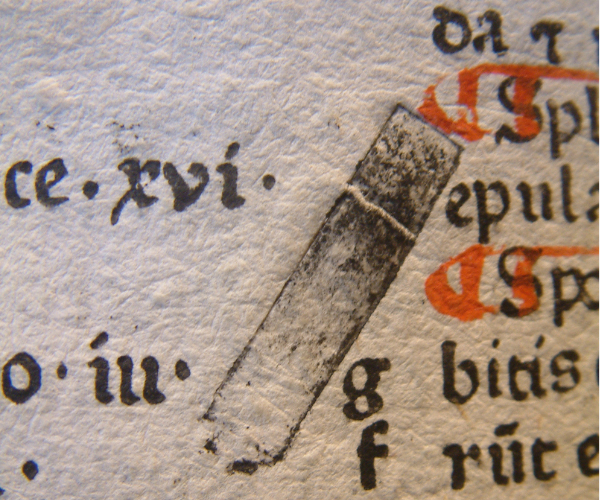 da
¶ Spl
ce·xvi·
epula
¶ Spo
o·iii·
g bitis
f rūt e